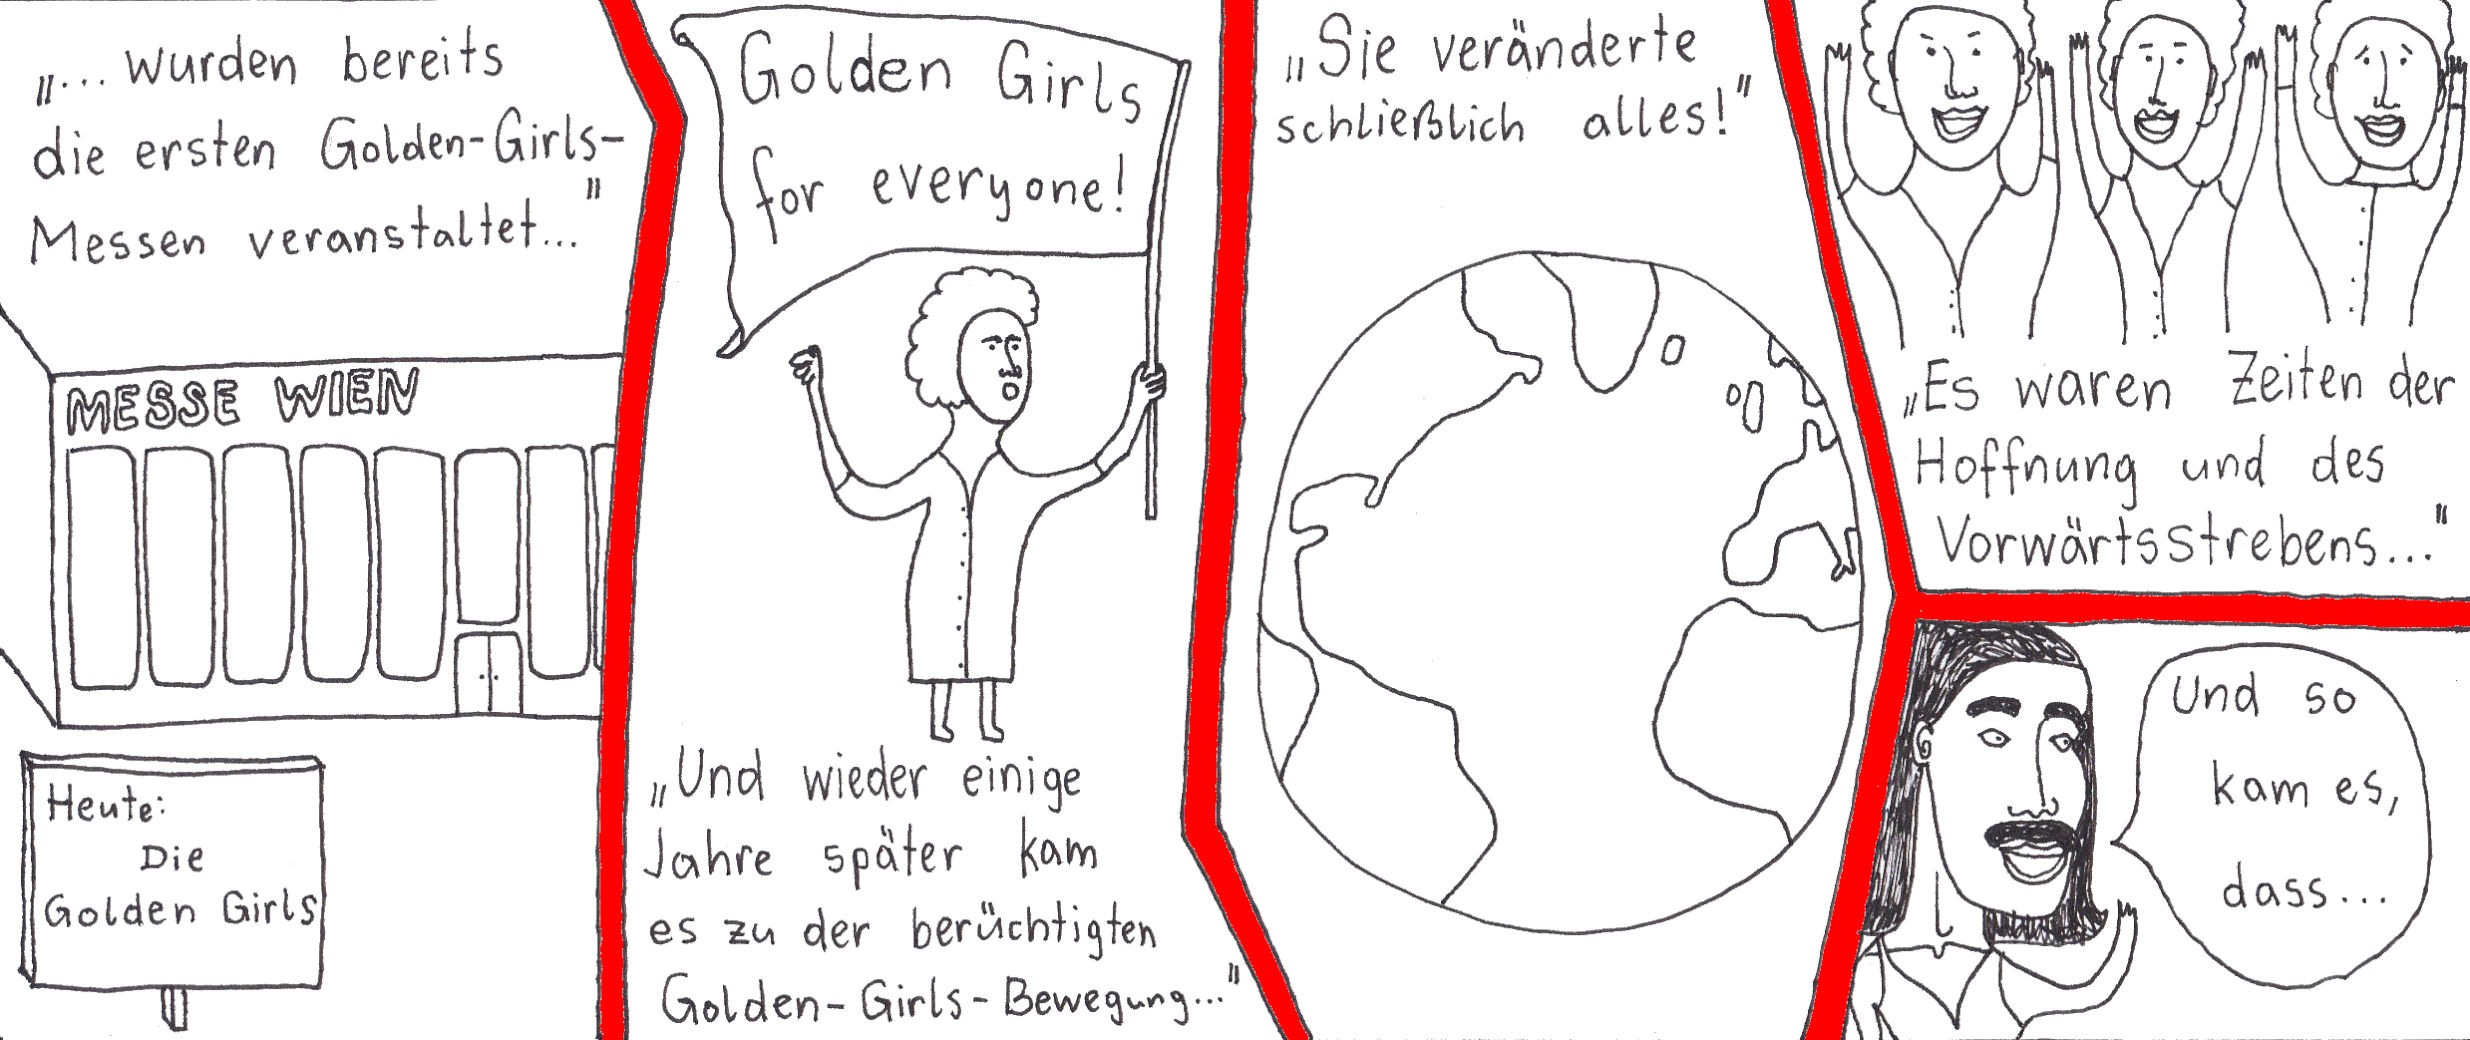 „... wurden bereits
die ersten Golden-Girls-
Messen veranstaltet..."
MESSE WIEN
Heute:
Die
Golden Girls
Golden Girls
for everyone!
„Und wieder einige
Jahre später kam
es zu der berüchtigten
Golden-Girls-Bewegung..."
„Sie veränderte
schließlich alles!"
„Es waren Zeiten der
Hoffnung und des
Vorwärtsstrebens..."
Und so
kam es,
dass...